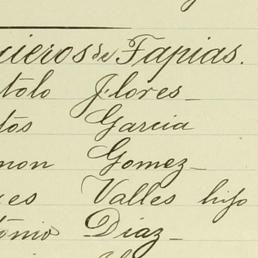 uieros de Tapias.
tolo Flores_
tos Garcia
mon Gomez_
es Valles hijo
tonio Diaz_